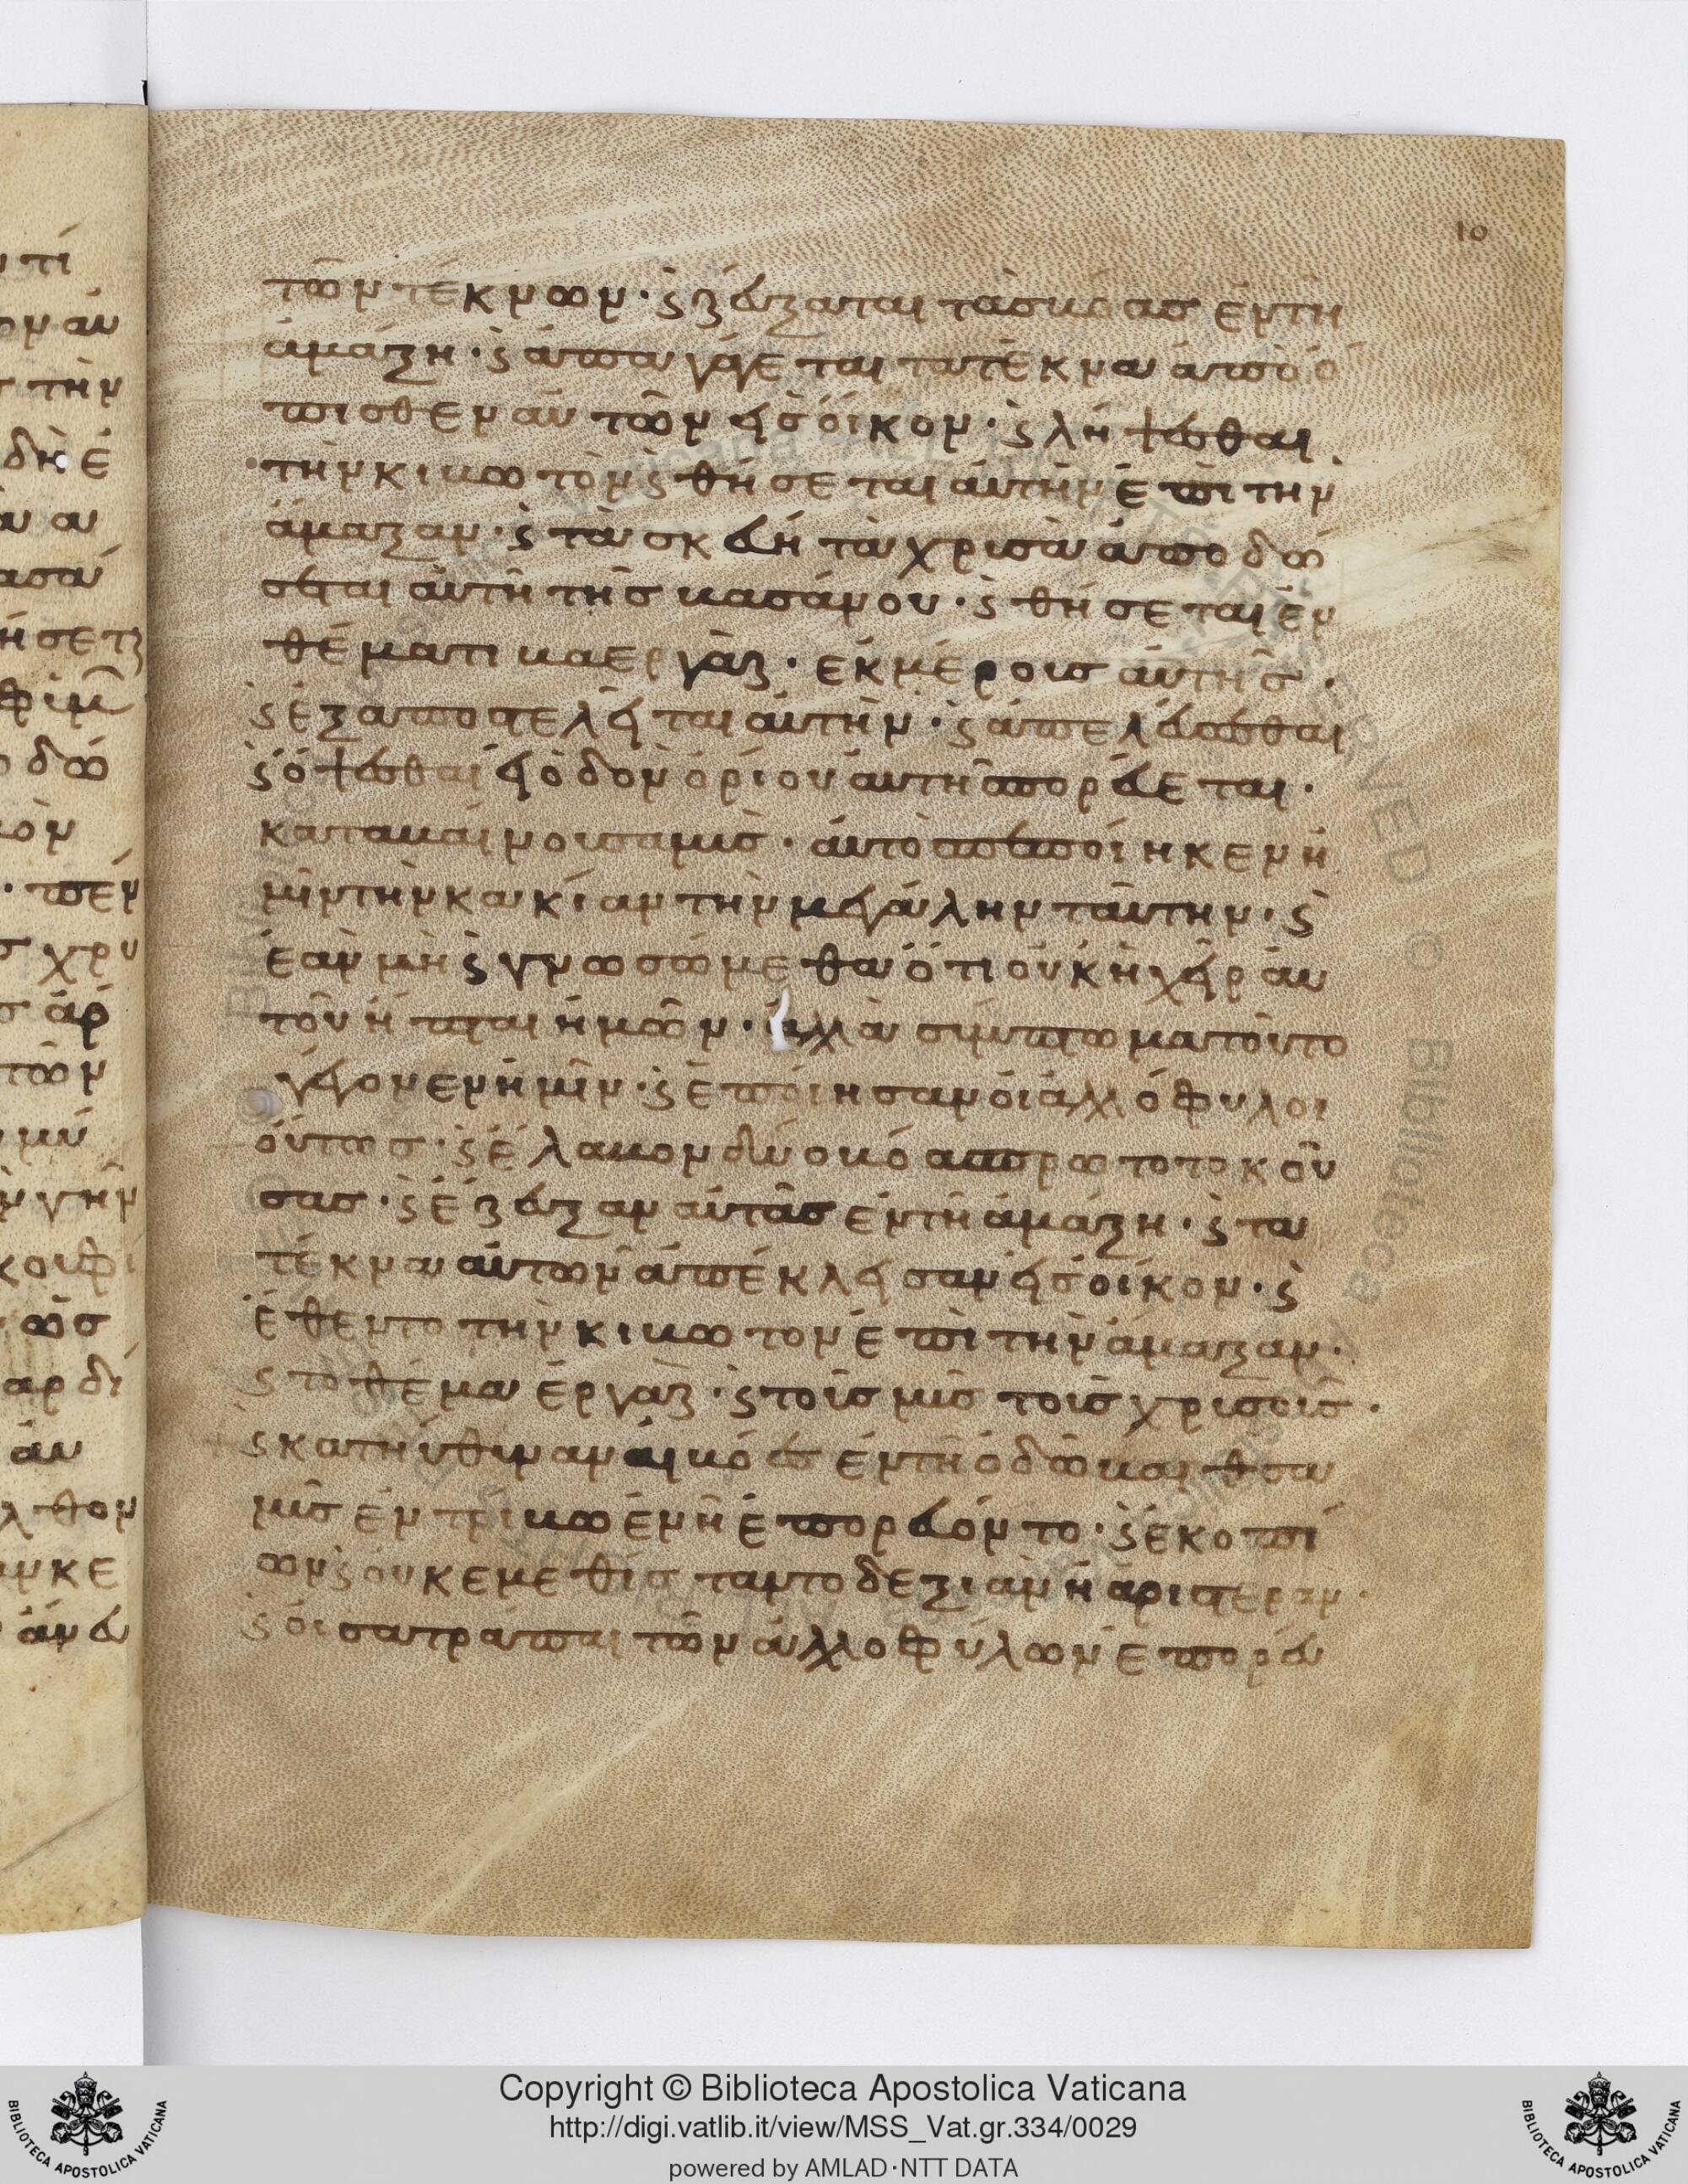 10
τῶν τέκνων· ϗ ζεύξαται τὰς βόας ἐν τῆ
ἁμάξη· ϗ ἀπαγάγεται τα τέκνα ἀπὸ ὄ
πισθεν αὐτῶν εἰς ὄικον· ϗ λήψεσθαι
τὴν κιβωτὸν ϗ θήσεται ἀυτὴν ἐπι τὴν
ἅμαξαν· ϗ τὰ σκεύη τὰ χρισὰ ἀποδώ
σεται ἀυτῆ τῆς βασάνου· ϗ θήσεται ἐν
θέματι βαεργὰζ· ἐκ μέρους ἀυτῆς·
ϗ ἐξαποστελεῖται ἀυτὴν· ϗ ἀπελεύσεσθαι
ϗ ὄψεσθαι εἰ ὁδὸν ὁρίου ἀυτῆ πορεύεται·
κατα βαίνουσαμις· ἀυτὸς πεποίηκεν ἡ
μῖν τὴν κακίαν τὴν μεγάλην τάυτην· ϗ
ἐὰν μὴ ϗ γνωσώμεθα ὅτι οὐκ ἡ χεὶρ ἀυ
τοῦ ἧπται ἡμῶν· ἀλλὰ σύνπτωμα τοῦτο
γέγονεν ἡμῖν· ϗ ἐποίησαν ὁι ἀλλόφυλοι
ὅυτως· ϗ ἔλαβον δύο βόας πρωτοτοκοῦ
σας· ϗ ἔζευξαν αὐτὰς ἐν τῆ ἁμάξη· ϗ τα
τέκνα αὐτῶν ἀπέκλεισαν εἰς οἶκον· ϗ
ἔθεντο τὴν κιβωτον ἐπὶ τὴν ἅμαξαν·
ϗ το θέμα ἐργὰζ· ϗ τοὺς μῦς τοὺς χρισοῦς·
ϗ κατηύθυναν ἁι βόες ἐν τῆ ὁδῶ βαιθσα
μῦς ἐν τρίβω ἑνὴ ἐπορεύοντο· ϗ ἐκοπί
ων ϗ οὐκ εμεθίσταντο δεξιὰν ἢ ἀριστεραν·
ϗ ὁι σατράπαι τῶν ἀλλοφύλων ἐπορεύ
Copyright © Biblioteca Apostolica Vaticana
http://digi.vatlib.it/view/MSS_Vat.gr.334/0029
powered by AMLAD·NTT DATA
BIBLIOTECA APOSTOLICA VATICANA
BIBLIOTECA APOSTOLICA VATICANA